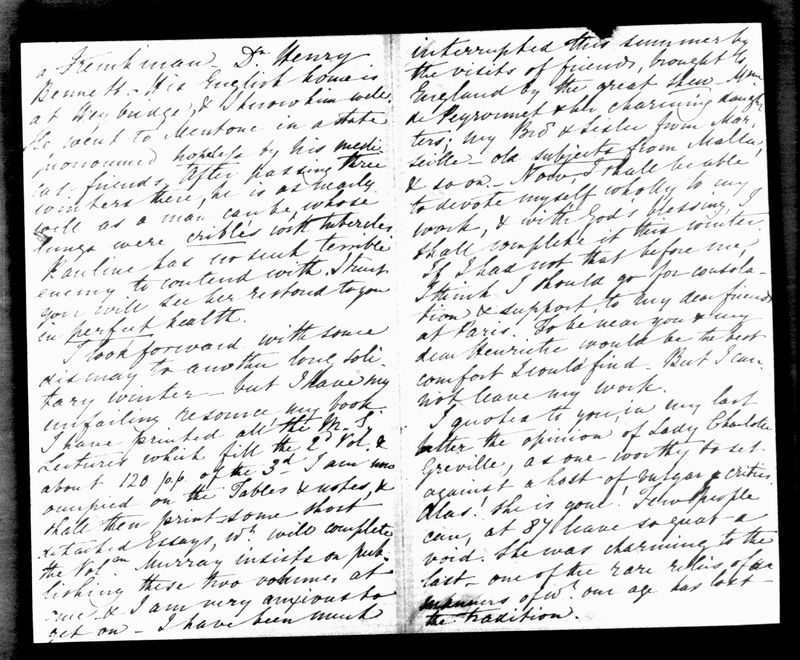 a Frenchman - Dr. Henry
Bennett - His English home is
at Weybridge, & I know him well.
He went to Mentone in a state
pronounced hopeless by his medi
cal friends. After passing three
winters there, he is as nearly
well as a man can be, whose
lungs were criblés with tubercles.
Pauline has no such terrible
enemy to contend with. I trust
you will see her restored to you
in perfect health.
I look forward with some
dismay to another long soli-
tary winter - but I have my
unfailing resource my book.
I have printed all the M. S.
Lectures which fill the 2d Vol. &
about 120 p.p. of the 3d. I am now
occupied on the Tables & notes, &
shall then print some short
detached Essays, wh. will complete
the Vol. Murray insists on pub-
lishing these two volumes at
once & I am very anxious to
get on - I have been much
interrupted this summer by
the visits of friends, brought to
England by the great show - Mme
de Peyronnet & her charming daugh
ters; my Bro. & Sister from Mar-
seille - old subjects from Malta,
& so on. - Now, I shall be able
to devote myself wholly to my
work, & with God's blessing, I
shall complete it this winter.
If I had not that before me,
I think I should go for consola-
tion & support, to my dear friends
at Paris. To be near you & my
dear Henriette would be the best
comfort I could find. But I can
not leave my work.
I quoted to you, in my last
letter the opinion of Lady Charlotte
Greville, as one worthy to set
against a host of vulgar critics.
Alas! she is gone! Few people
can, at 87 leave so great a
void. She was charming to the
last - one of the rare relics of
manners of wh. our age has lost
the tradition.